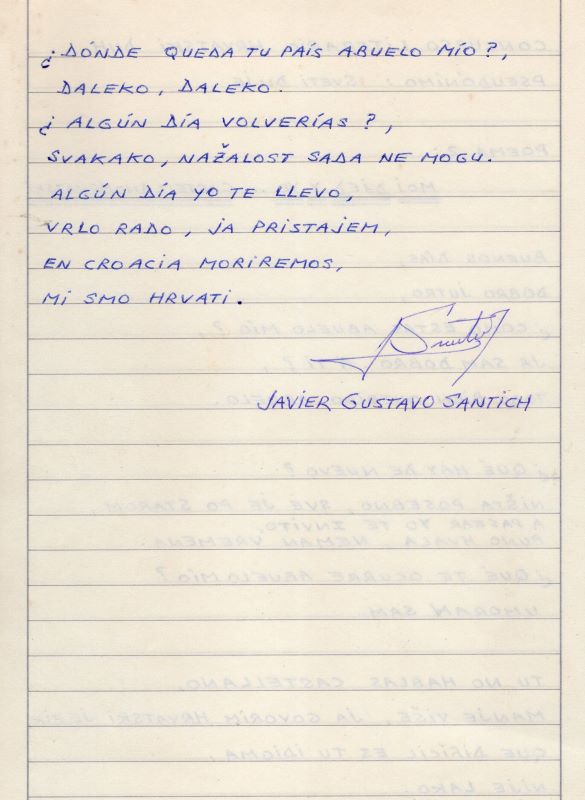 ¿DÓNDE QUEDA TU PAÍS ABUELO MÍO?,
DALEKO, DALEKO.
¿ALGÚN DÍA VOLVERÍAS?,
SVAKAKO, NAŽALOST SADA NE MOGU.
ALGÚN DÍA YO TE LLEVO,
VRLO RADO, JA PRISTAJEM,
EN CROACIA MORIREMOS,
MI SMO HRVATI.
JAVIER GUSTAVO SANTICH